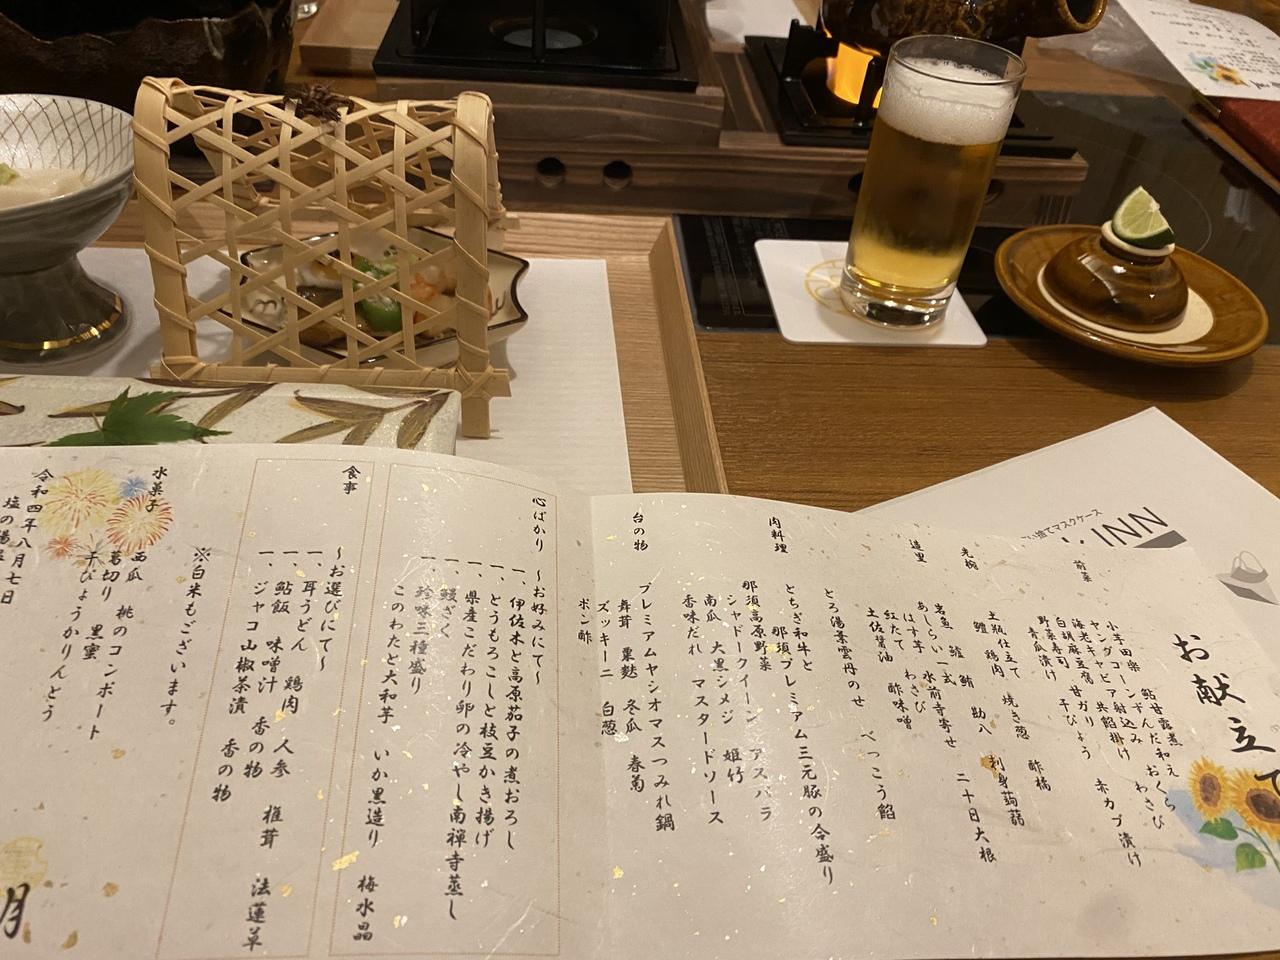 お献立て
前菜
小芋田楽 鮎甘露煮
ヤングコーンずんだ和え おくら
海老キャビア射込み わさび
白胡麻豆腐 共餡掛け
野菜寿司 甘ガリ 赤カブ漬け
青瓜漬け 干ぴょう
先椀
土瓶仕立て 焼き葱 酢橘
鱧 鶏肉
造里
岩魚 鱸 鮪 勘八 刺身蒟蒻
あしらい一式 水前寺寄せ 二十日大根
はす芋 わさび
紅たて 酢味噌
土佐醤油
とろ湯葉雲丹のせ べっこう餡
肉料理
とちぎ和牛と
那須プレミアム三元豚の合盛り
那須高原野菜
シャドークイーン アスパラ
南瓜 大黒シメジ 姫竹
香味だれ マスタードソース
台の物
プレミアムヤシオマスつみれ鍋
舞茸 粟麩 冬瓜 春菊
ズッキーニ 白葱
ポン酢
心ばかり ～お好みにて～
一、伊佐木と高原茄子の煮おろし
一、とうもろこしと枝豆かき揚げ
一、県産こだわり卵の冷やし南禅寺蒸し
一、鰻ざく
一、珍味三種盛り
このわたと大和芋 いか黒造り 梅水晶
食事
～お選びにて～
一、耳うどん 鶏肉 人参 椎茸 法蓮草
一、鮎飯 味噌汁 香の物
一、ジャコ山椒茶漬 香の物
※白米もございます。
水菓子
西瓜 桃のコンポート
葛切り 黒蜜
干ぴょうかりんとう
令和四年八月七日
月
い捨てマスクケース
INN